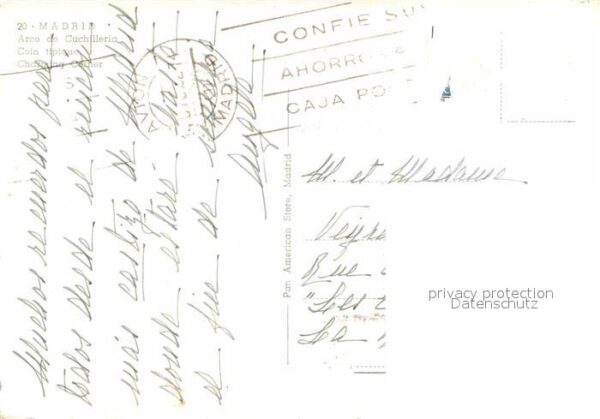 20 - MADRID
Arco de Cuchilleria
Coin tipique
Charming Corner
CONFIE SUS
AHORROS
CAJA PO
AVION
MADRID
Muchos recuerdos para
todos desde el rincón
más castizo de Madrid
donde estaré hasta
el fin de
Pan American Store, Madrid
M. et Madame
Rue
La
privacy protection
Datenschutz